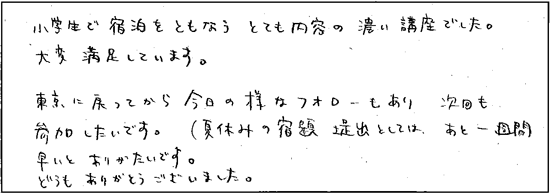 小学生で宿泊をともなう とても内容の濃い講座でした。
大変満足しています。
東京に戻ってから 今日の様なフォローもあり 次回も
参加したいです。(夏休みの宿題 提出としては、あと一週間
早いと ありがたいです。
どうも ありがとうございました。